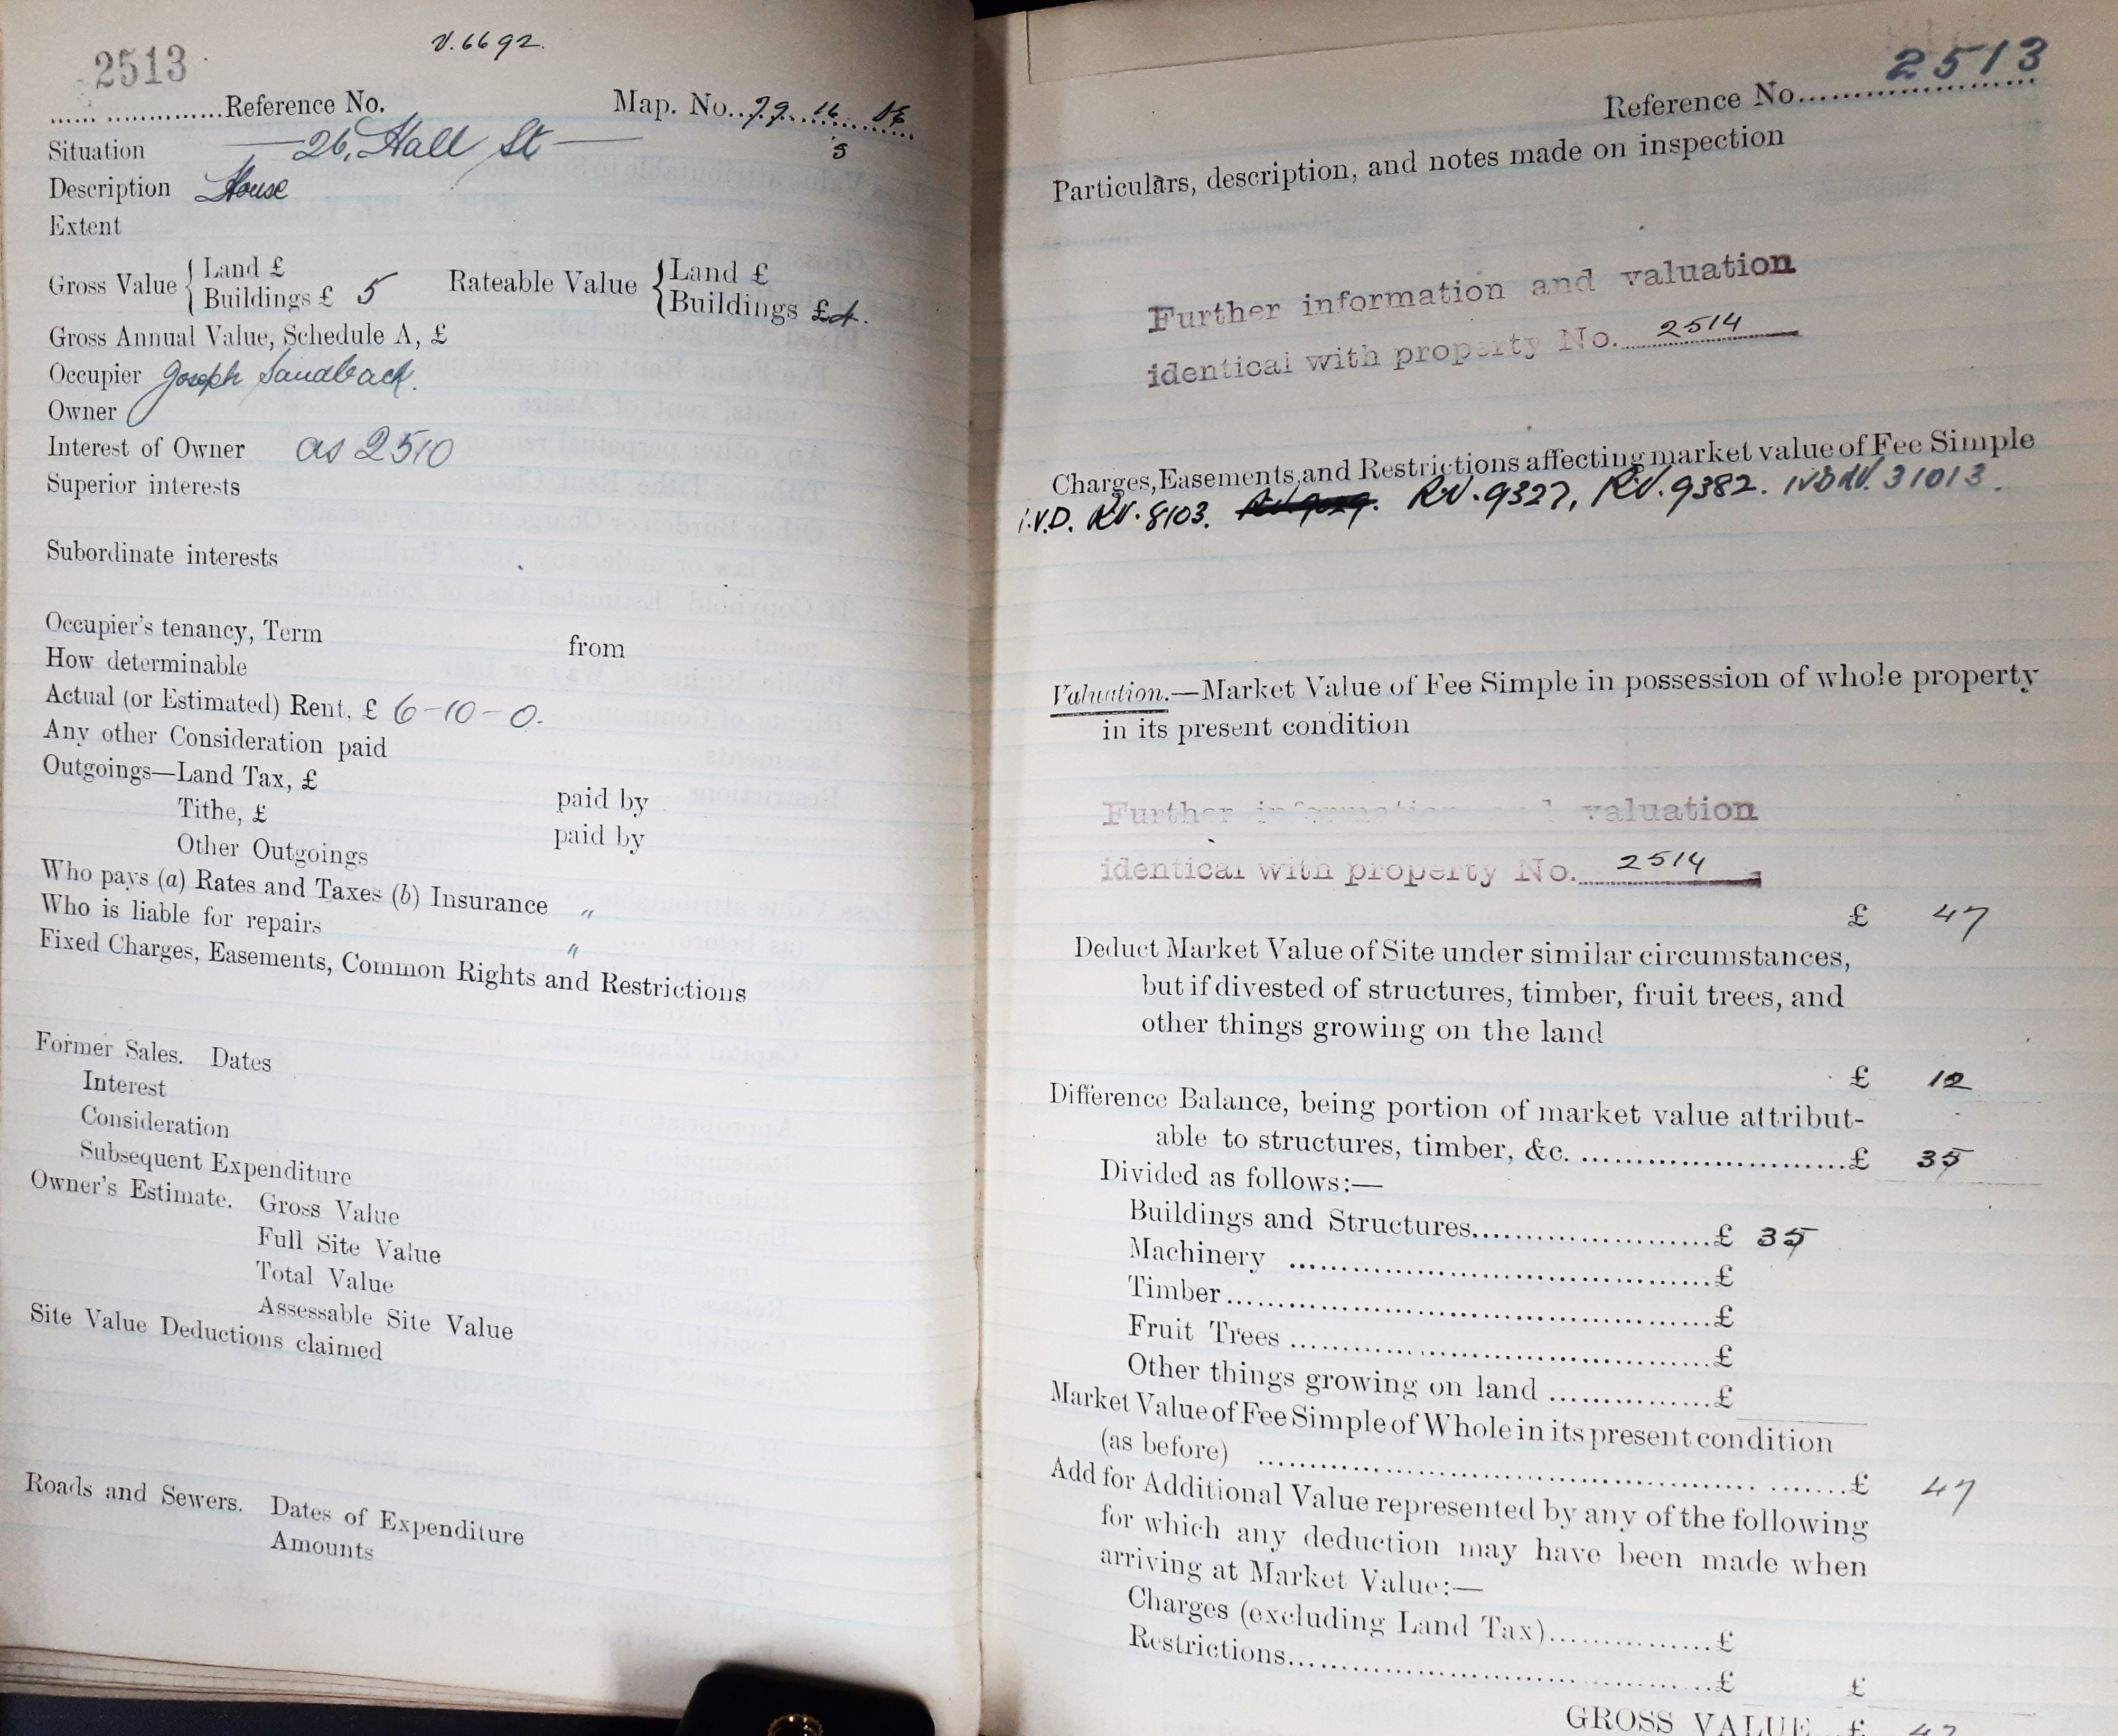 2513
V.6692.
...... ..............Reference No. Map. No. 79. 16. NE
Situation 26, Hall St
5
Description House
Extent
Gross Value { Land £
Buildings £ 5
Rateable Value { Land £
Buildings £4.
Gross Annual Value, Schedule A, £
Occupier Joseph Sandback.
Owner
Interest of Owner as 2510
Superior interests
Subordinate interests
Occupier's tenancy, Term from
How determinable
Actual (or Estimated) Rent, £ 6-10-0.
Any other Consideration paid
Outgoings—Land Tax, £ paid by
Tithe, £ paid by
Other Outgoings
Who pays (a) Rates and Taxes (b) Insurance "
Who is liable for repairs "
Fixed Charges, Easements, Common Rights and Restrictions
Former Sales. Dates
Interest
Consideration
Subsequent Expenditure
Owner's Estimate. Gross Value
Full Site Value
Total Value
Assessable Site Value
Site Value Deductions claimed
Roads and Sewers. Dates of Expenditure
Amounts
Reference No. 2513
Particulars, description, and notes made on inspection
Further information and valuation
identical with property No. 2514
Charges, Easements, and Restrictions affecting market value of Fee Simple
I.V.D. RV.8103. RV.9327, RV.9382. IVD RV.31013.
Valuation.—Market Value of Fee Simple in possession of whole property
in its present condition
Further information and valuation
identical with property No. 2514
£ 47
Deduct Market Value of Site under similar circumstances,
but if divested of structures, timber, fruit trees, and
other things growing on the land
£ 12
Difference Balance, being portion of market value attribut-
able to structures, timber, &c. ..............................£ 35
Divided as follows:—
Buildings and Structures............................£ 35
Machinery ..................................................£
Timber.......................................................£
Fruit Trees ................................................£
Other things growing on land ...................£
Market Value of Fee Simple of Whole in its present condition
(as before) ..........................................................£ 47
Add for Additional Value represented by any of the following
for which any deduction may have been made when
arriving at Market Value:—
Charges (excluding Land Tax)....................£
Restrictions................................................£ £
GROSS VALUE...£ 47